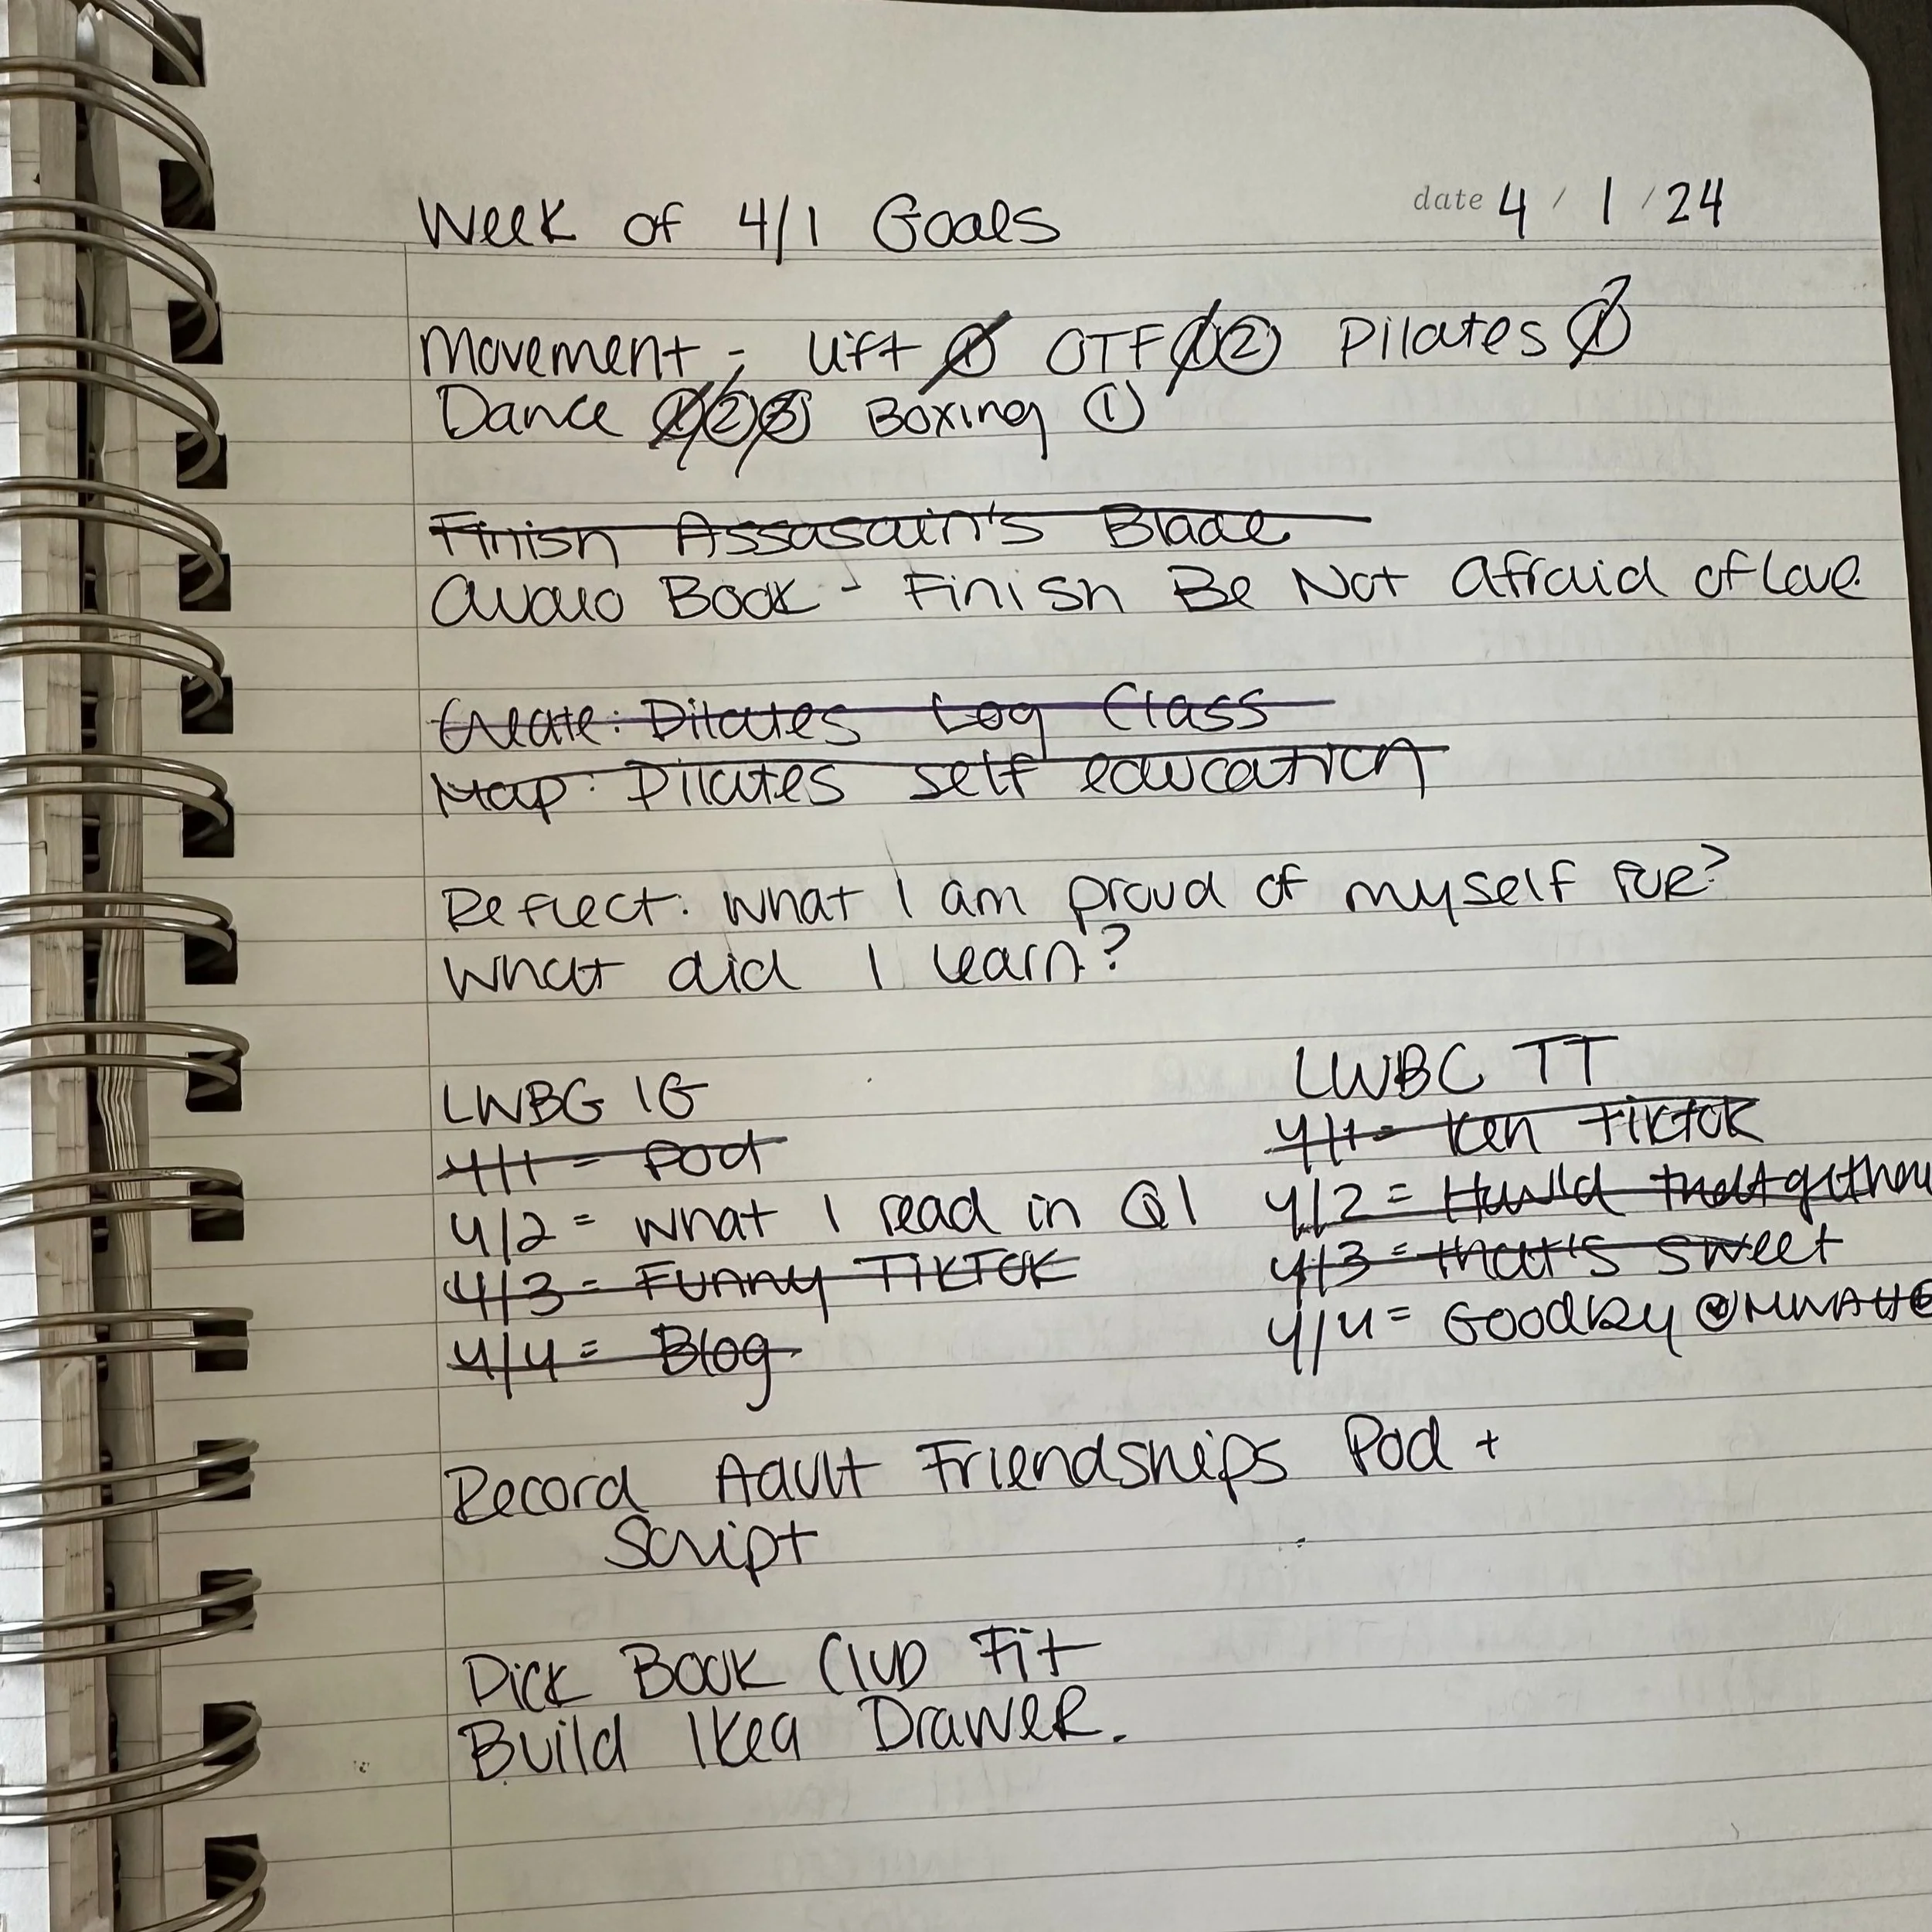 Week of 4/1 Goals
date 4 / 1 / 24
Movement - Lift ① OTF ①② Pilates ①
Dance ①②③ Boxing ①
Finish Assasain's Blade
Audio Book - Finish Be Not Afraid of Love
Create: Pilates Log Class
Map: Pilates self education
Reflect: What I am proud of myself for?
What did I learn?
LWBG IG
4/1 = Pod
4/2 = What I read in Q1
4/3 = Funny TikTok
4/4 = Blog
LWBC TT
4/1 = Ken TikTok
4/2 =
4/3 = that's sweet
4/4 = Goodbey
Record Adult Friendships Pod +
Script
Pick Book Club Fit
Build Ikea Drawer.